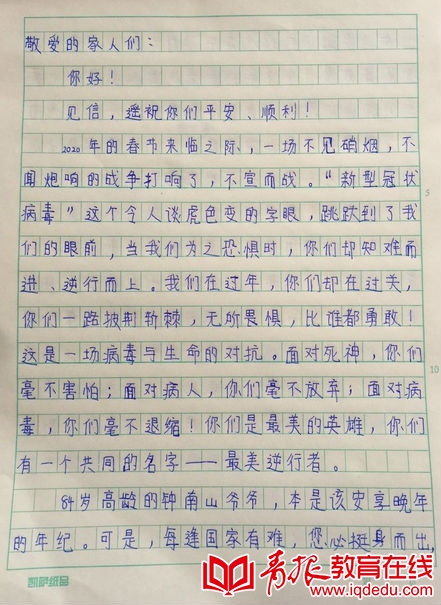 敬爱的家人们：
你好！
见信，遥祝你们平安、顺利！
2020年的春节来临之际，一场不见硝烟，不
闻炮响的战争打响了，不宣而战。“新型冠状
病毒”这个令人谈虎色变的字眼，跳跃到了我
们的眼前，当我们为之恐惧时，你们却知难而
进、逆行而上。我们在过年，你们却在过关，
你们一路披荆斩棘，无所畏惧，比谁都勇敢！
这是一场病毒与生命的对抗。面对死神，你们
毫不害怕；面对病人，你们毫不放弃；面对病
毒，你们毫不退缩！你们是最美的英雄，你们
有一个共同的名字——最美逆行者。
84岁高龄的钟南山爷爷，本是该安享晚年
的年纪。可是，每逢国家有难，您必挺身而出，
5
10
凯萨纸品
青报教育在线
www.iqdedu.com